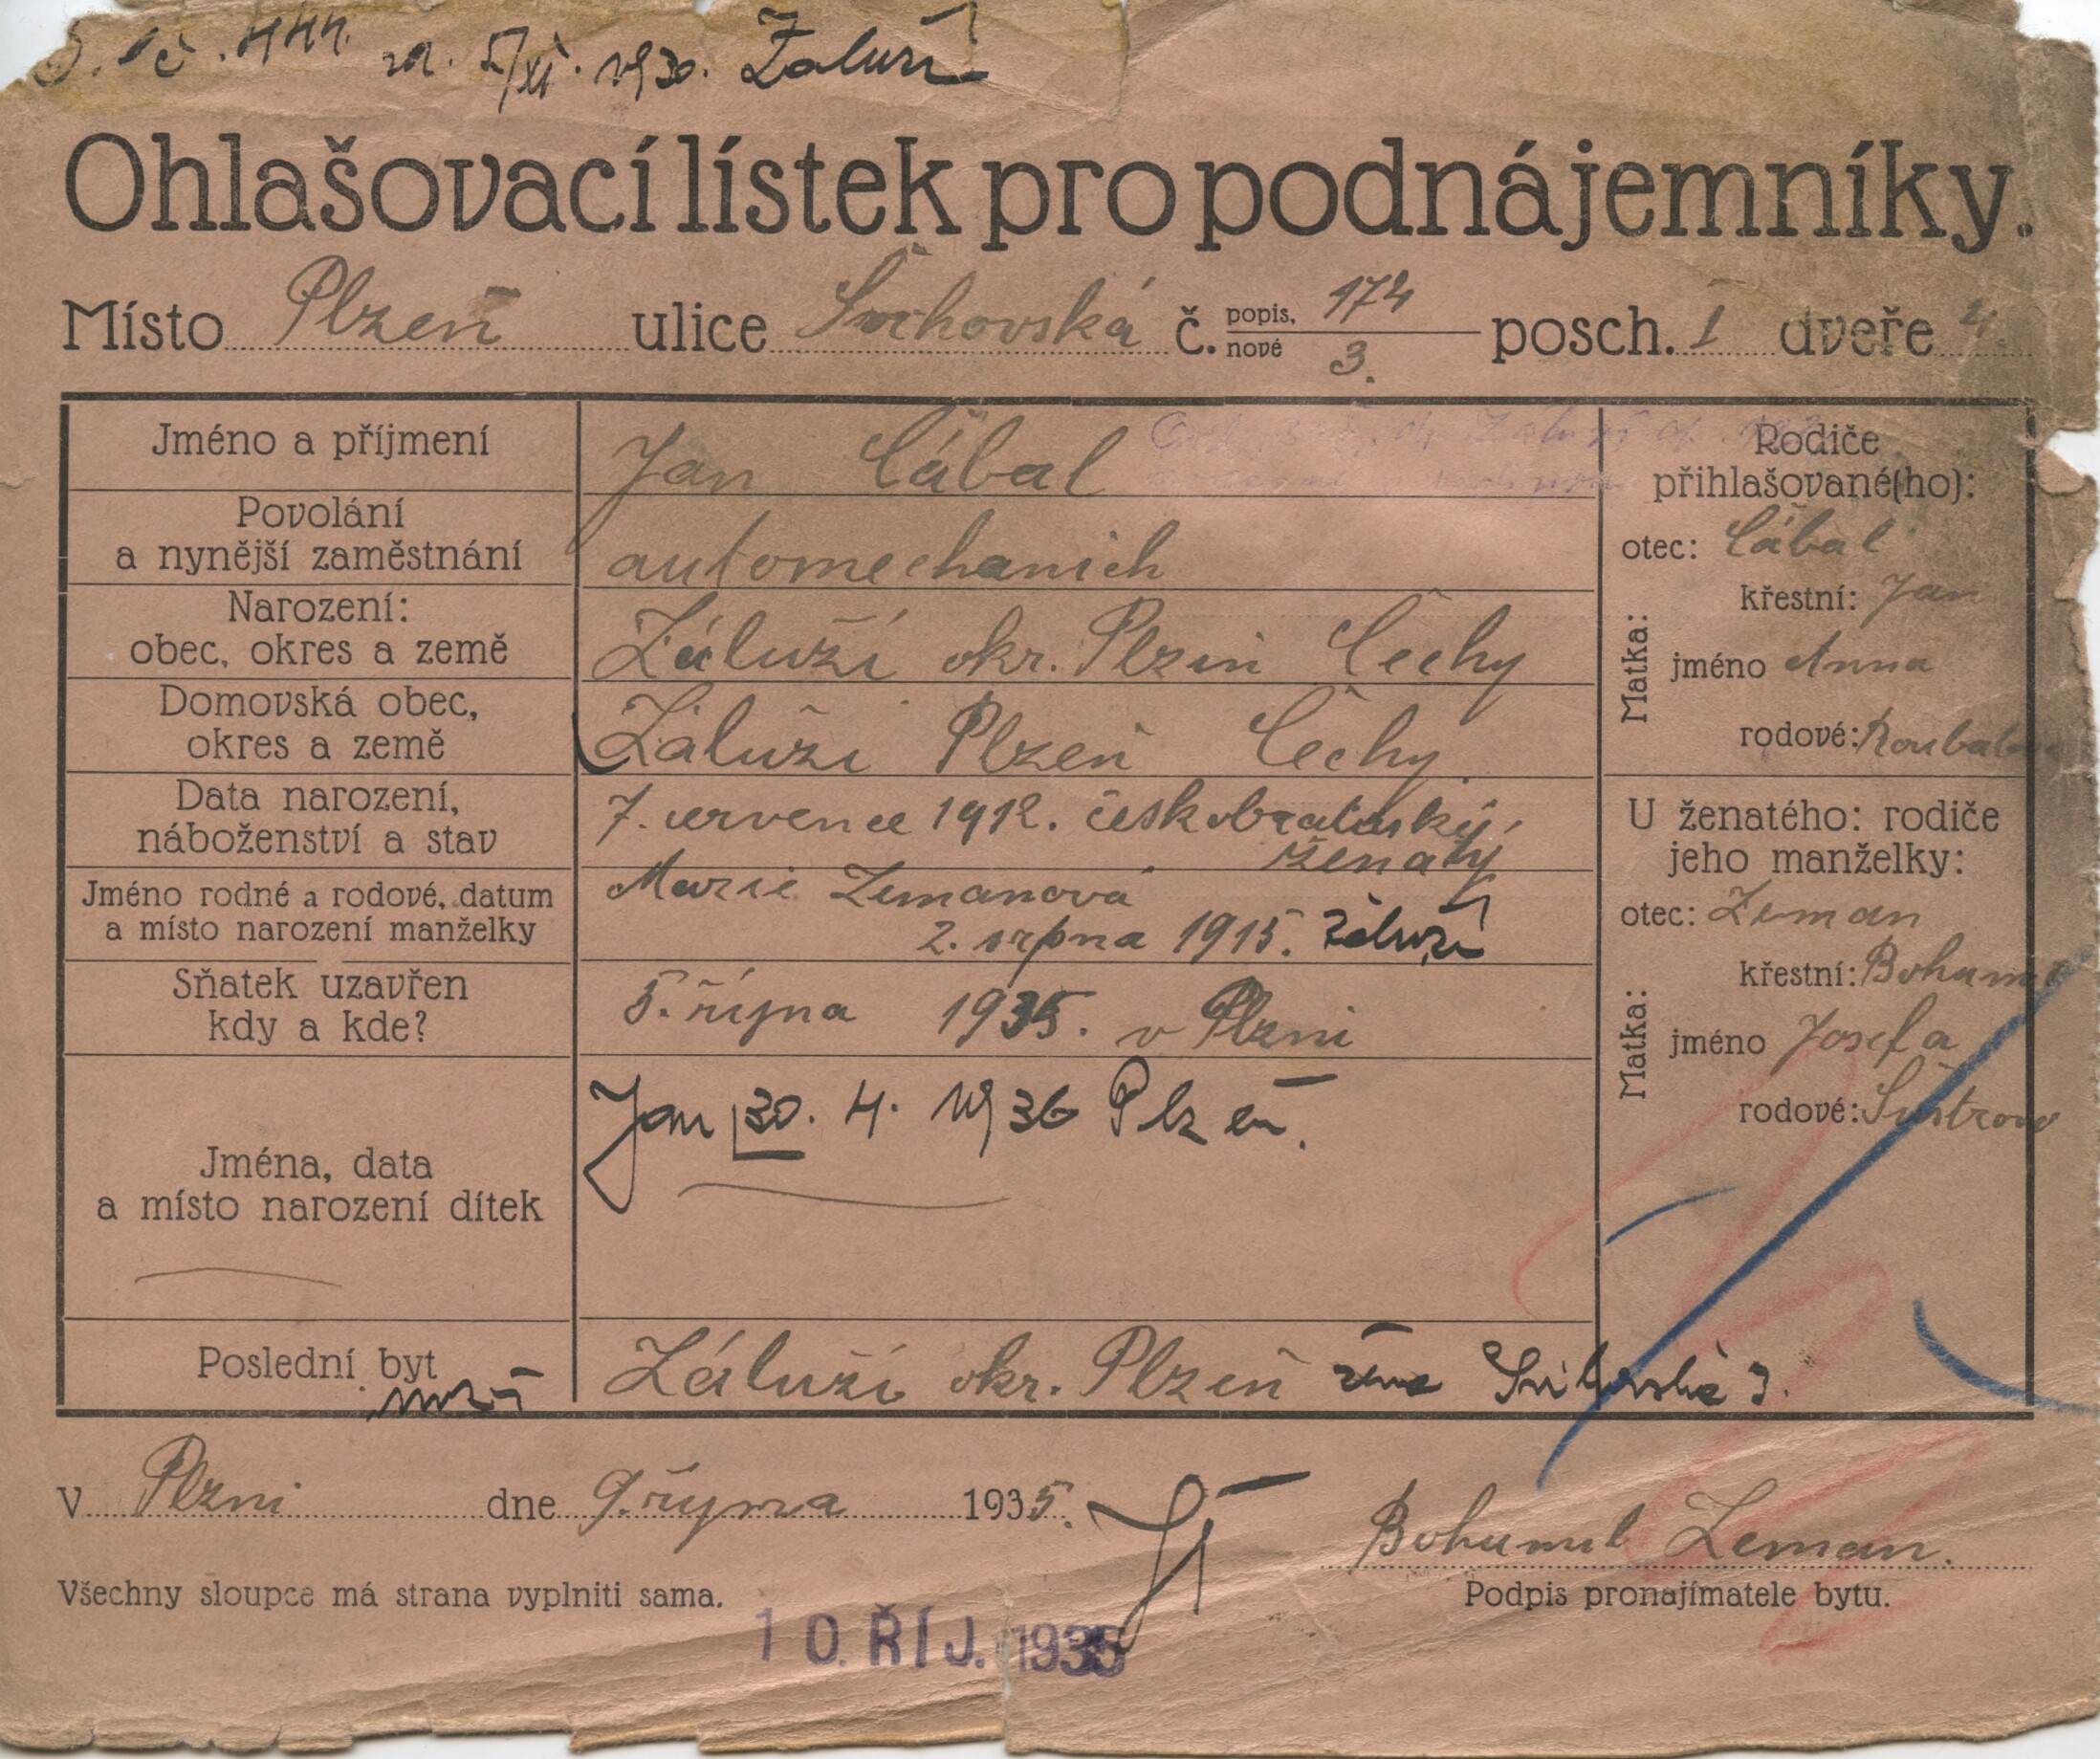 č. 444. za. 5/XI. 1930. Záluží
Ohlašovací lístek pro podnájemníky.
Místo Plzeň ulice č. popis. 174 nové 3. posch. I dveře 4.
Jméno a příjmení Jan Cábal
Povolání a nynější zaměstnání automechanick
Narození: obec, okres a země Záluží okr. Plzeň Čechy
Domovská obec, okres a země Záluží Plzeň Čechy
Data narození, náboženství a stav 7. července 1912. českobratrský, ženatý
Jméno rodné a rodové, datum a místo narození manželky Marie Zemanová
2. srpna 1915. Záluží
Sňatek uzavřen kdy a kde? 5. října 1935. v Plzni
Jména, data a místo narození dítek Jan 30. 4. 1936 Plzeň.
Poslední byt Záluží okr. Plzeň 3.
Rodiče
přihlašované(ho):
otec: Cábal
křestní: Jan
Matka:
jméno Anna
rodové: Roubalova
U ženatého: rodiče
jeho manželky:
otec: Zeman
křestní: Bohumil
Matka:
jméno Josefa
rodové:
V Plzni dne 9. října 1935.
Bohumil Zeman.
Všechny sloupce má strana vyplniti sama.
Podpis pronajímatele bytu.
10. ŘÍJ. 1935